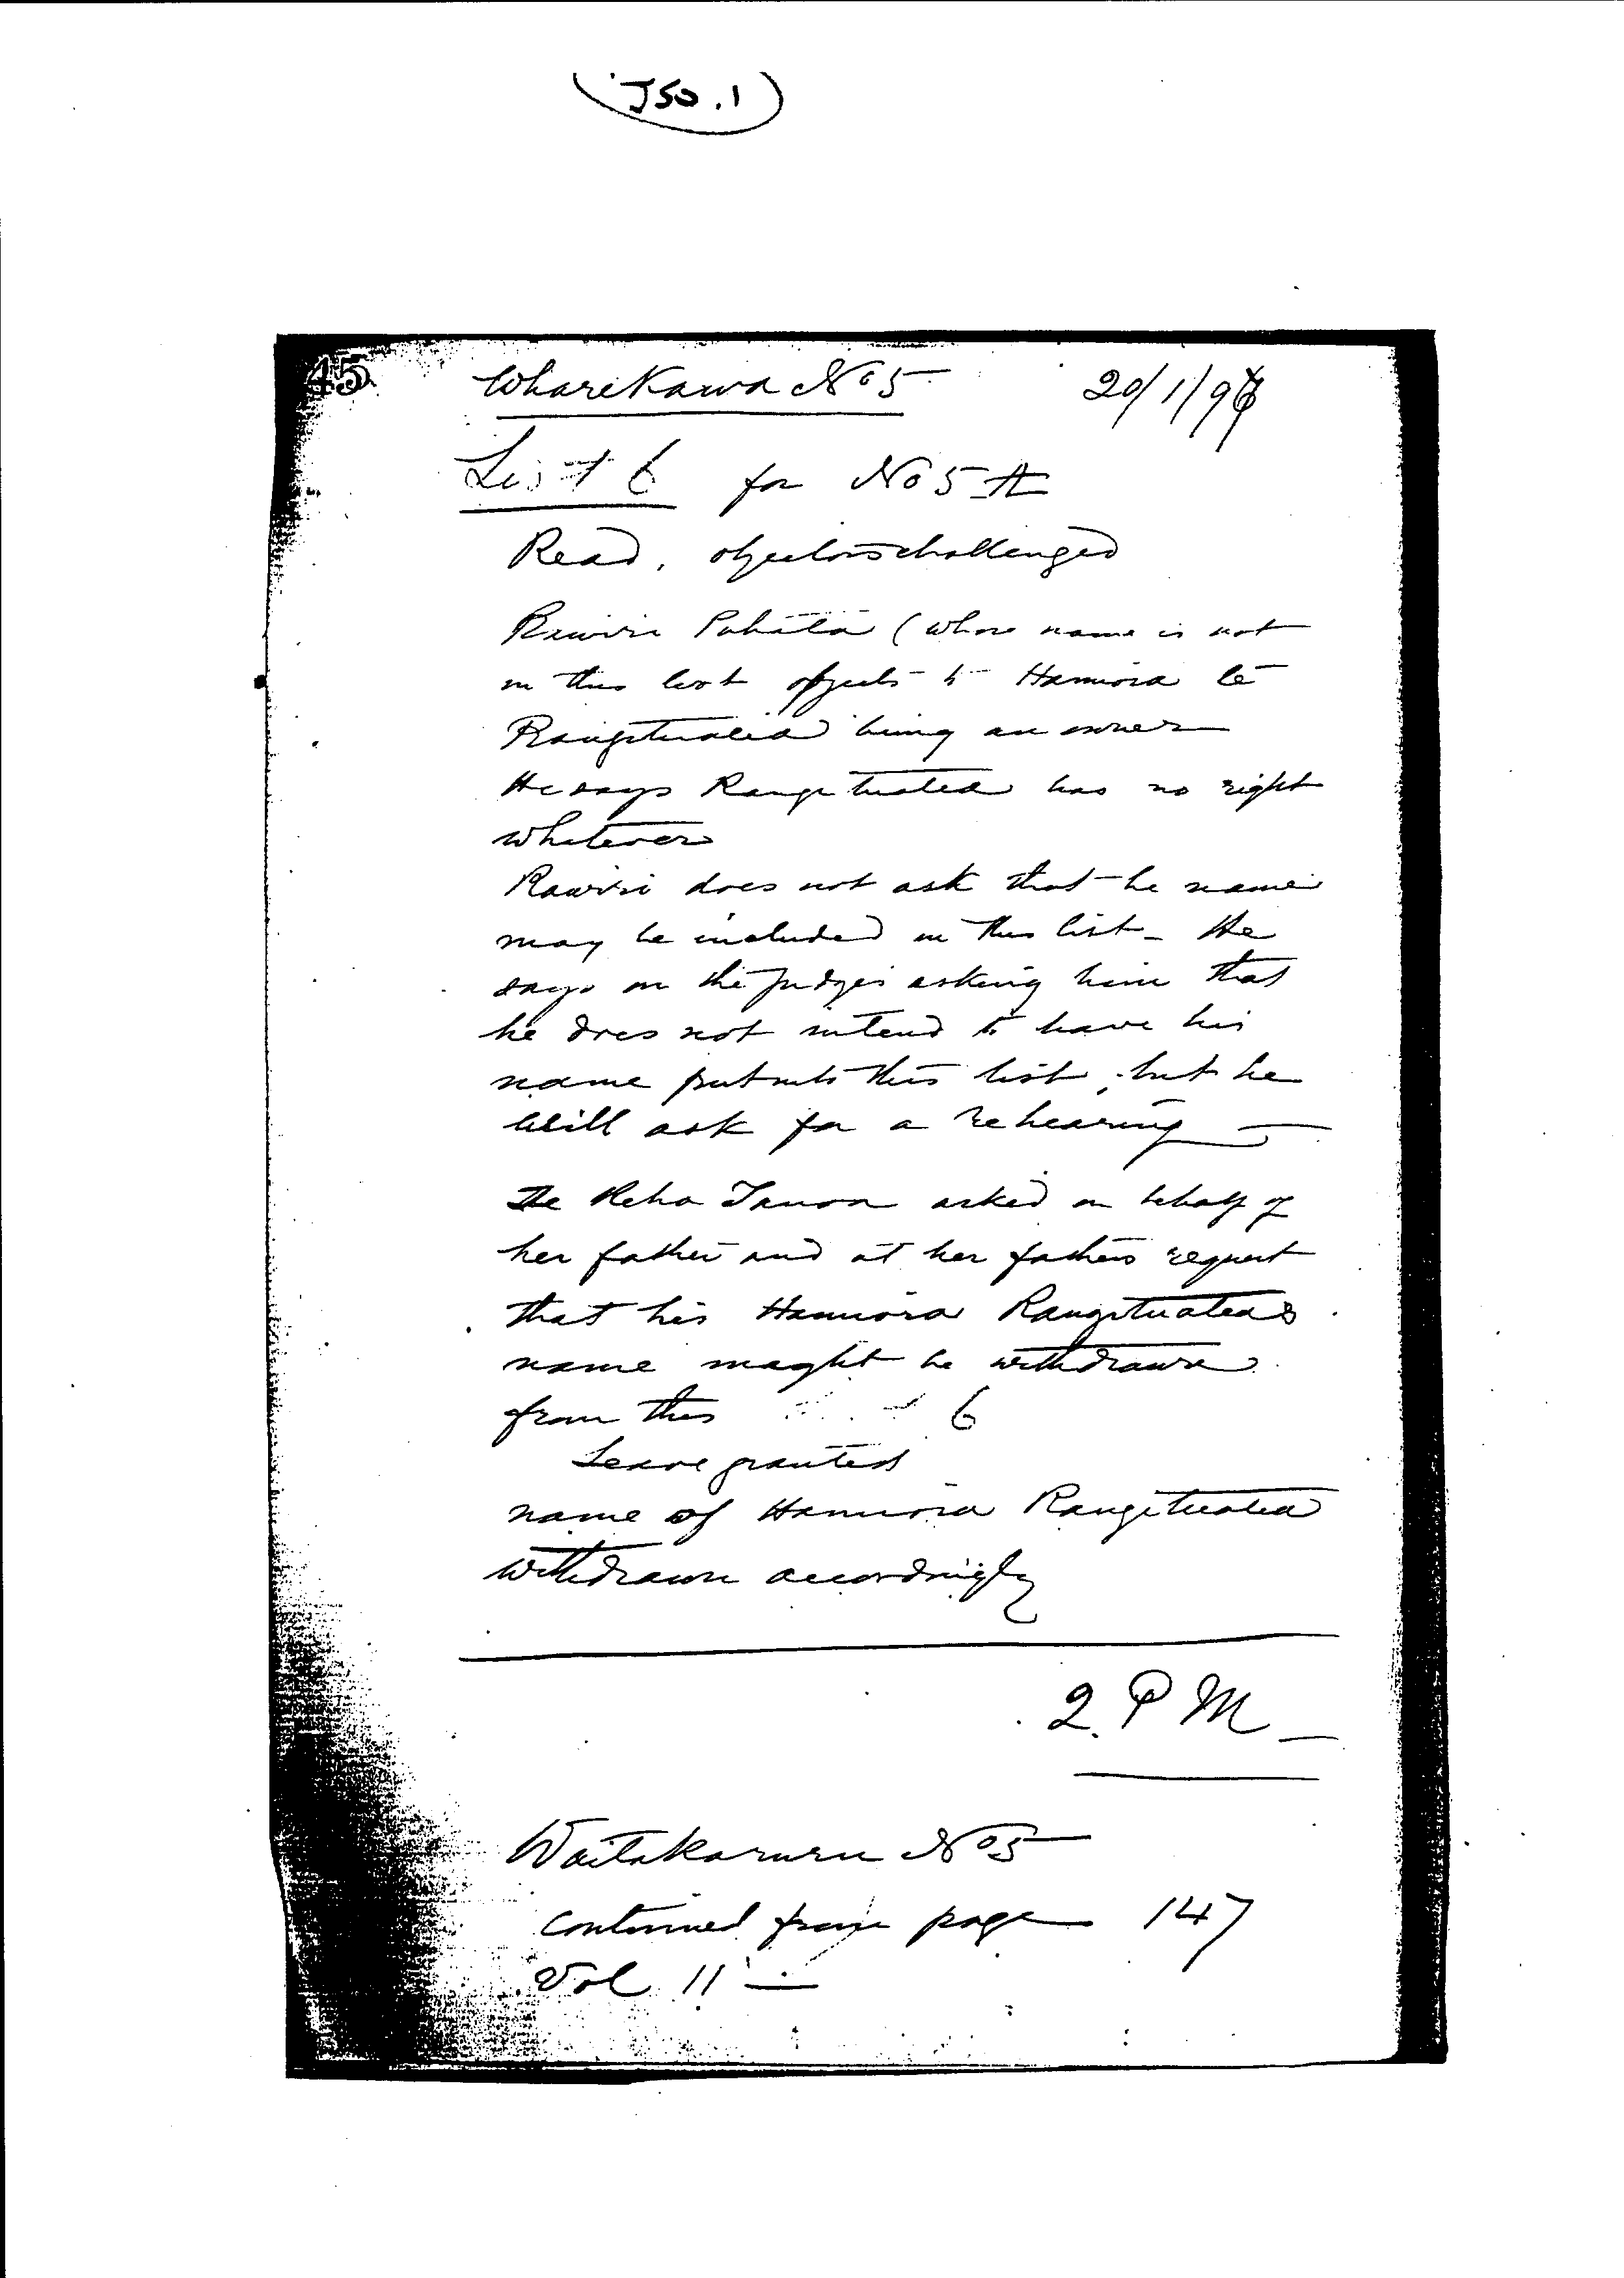 (JSO.1)
45
Wharekawa No 5
20/1/97
List 6 for No 5 A
Read, objectors challenged
Rawiri (whose name is not
in this list objects to Hamiora te
Rangituatea being an owner
He says Rangituatea has no right
whatever
Rawiri does not ask that he name
may be included in this list - He
says on the Judges asking him that
he does not intend to have his
name put into this list, but he
will ask for a rehearing —
Te Reha Tauon asked on behalf of
her father and at her fathers request
that his Hamiora Rangituateas
name maght be withdrawn
from this 6
Leave granted
name of Hamiora Rangituatea
withdrawn accordingly
2. P M —
Waitakaruru No 5
continued from page 147
Vol 11 —